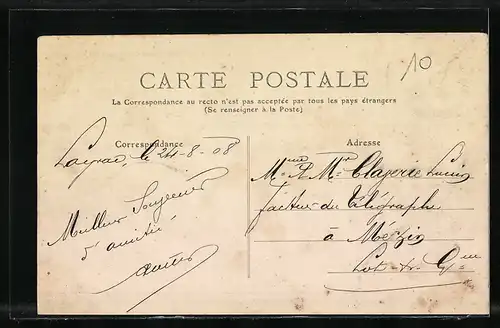 10
CARTE POSTALE
La Correspondance au recto n'est pas acceptée par tous les pays étrangers
(Se renseigner à la Poste)
Correspondance
Adresse
Layrac, le 24-8-08
Meilleur Souvenir
d'amitié
Mme & Mr Clagerie
facteur du télégraphe
à Mézin
Lot-et-Gne